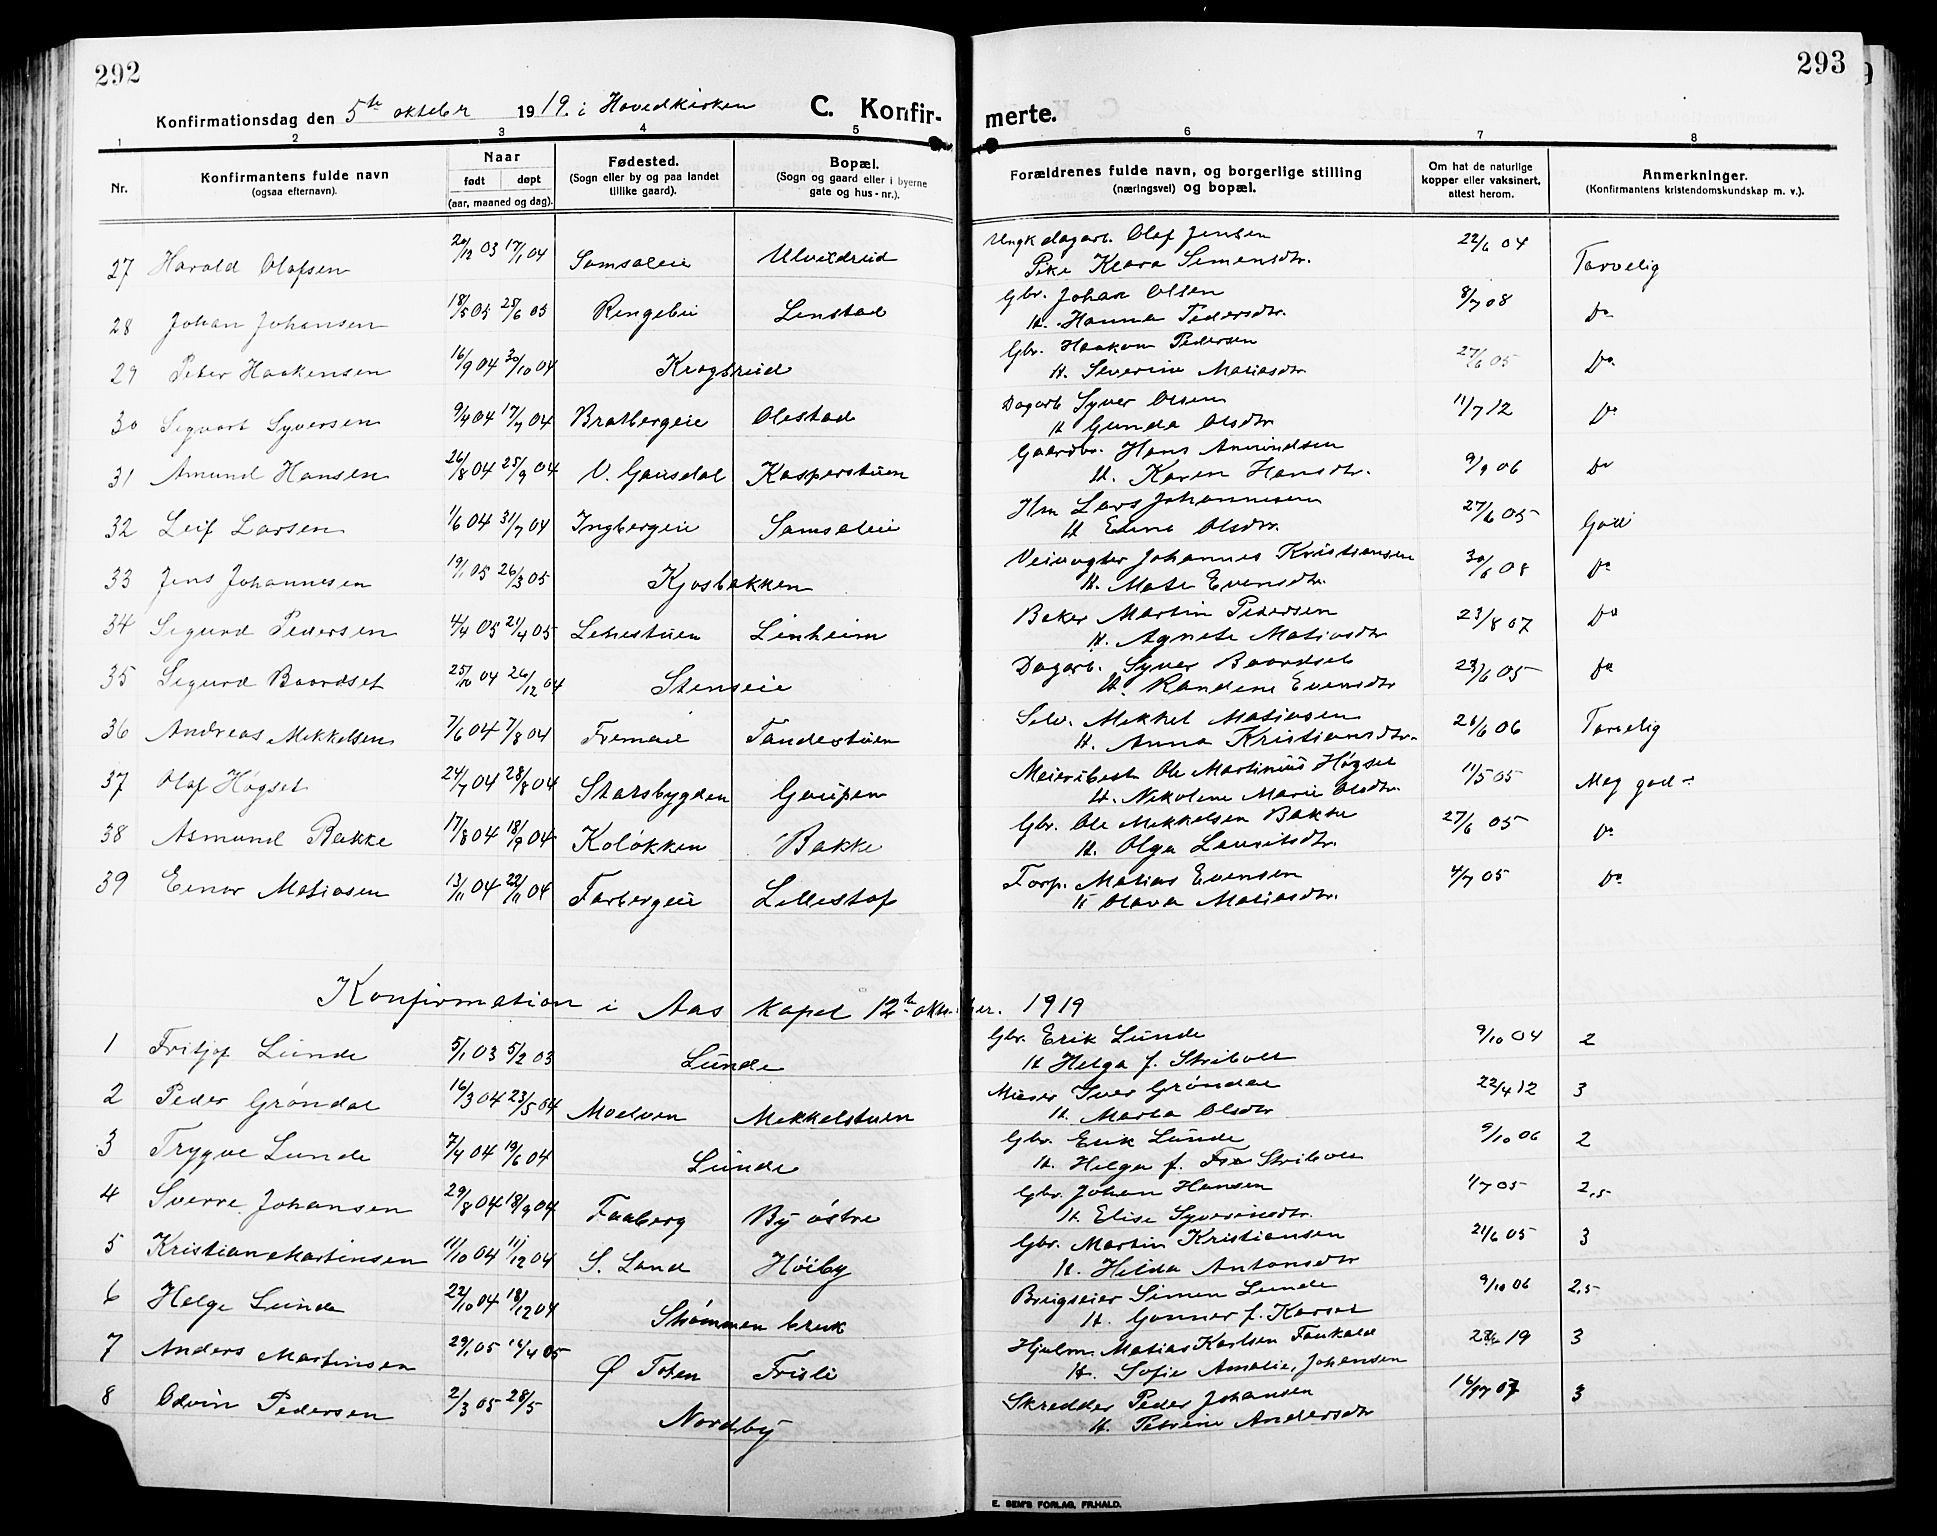 292
293
Konfirmationsdag den 5te oktober 1919. i Hovedkirken C. Konfirmerte.
1 2 3 4 5 6 7 8
Nr.
Konfirmantens fulde navn
(ogsaa efternavn).
Naar
født døpt
(aar, maaned og dag).
Fødested.
(Sogn eller by og paa landet
tillike gaard).
Bopæl.
(Sogn og gaard eller i byerne
gate og hus-nr.).
Forældrenes fulde navn, og borgerlige stilling
(næringsvei) og bopæl.
Om hat de naturlige
kopper eller vaksinert,
attest herom.
Anmerkninger.
(Konfirmantens kristendomskundskap m. v.).
27 Harald Olafsen 20/12 03 17/1 04 Samsaleie Ungk dagarb. Olaf Jensen 22/6 04 Tarvelig
Pike Klara Simensdtr.
28 Johan Johansen 18/5 05 25/6 05 Ringebu Linstad Gbr. Johan Olsen 8/7 08 Do
H. Hanna Pedersdtr.
29 Peter Haakensen 16/9 04 30/10 04 Kragbreid Gbr. Haakon Pedersen 27/6 05 Do
H. Severine Matiasdtr
30 Sigvart Syversen 9/4 04 17/7 04 Bratbergeie Olestad Dagarb Syver Olsen 11/7 12 Do
H Gunda Olsdtr
31 Amund Hansen 26/8 04 25/9 04 V. Gausdal Kasperstuen Gaardbr. Hans Amundsen 9/9 06 Do
H. Karen Hansdtr.
32 Leif Larsen 1/6 04 31/7 04 Ingbergeie Samsaleie Hm Lars Johannesen 27/6 05 God
H Elina Olsdtr.
33 Jens Johannesen 19/1 05 26/3 05 Kjosbakken Veivogter Johannes Kristiansen 30/6 08 Do
H. Mate Evensdtr.
34 Sigurd Pedersen 4/4 05 21/4 05 Linheim Baker Martin Pedersen 23/8 07 Do
H. Agnete Matiasdtr
35 Sigurd Baardset 25/10 04 26/12 04 Stenseie Dagarb. Syver Baardset 23/6 05 Do
H. Randine Evensdtr
36 Andreas Mikkelsen 7/6 04 7/8 04 Tandestuen Selv. Mikkel Matiasen 26/6 06 Tarvelig
H. Anna Kristiansdtr.
37 Olaf Høgset 24/7 04 28/8 04 Gaupen Meieribest. Ole Martinius Høgset 11/5 05 Meg god ÷
H. Nikoline Marie Olsdtr.
38 Asmund Bakke 17/8 04 18/9 04 Koløkken Bakke Gbr. Ole Mikkelsen Bakke 27/6 05 Do
H. Olga Lauritsdtr.
39 Einar Matiasen 13/11 04 22/11 04 Farbergeie Torp. Matias Evensen 4/7 05 Do
H Olava Matiasdtr.
Konfirmation i Aas kapel 12te oktober. 1919
1 Fritjof Lunde 5/1 03 5/2 03 Lunde Gbr. Erik Lunde 9/10 04 2
H Helga f. Stribolt
2 Peder Grøndal 16/3 04 23/5 04 Moelven Mikkelstuen Iver Grøndal 22/4 12 3
H. Marta Olsdtr
3 Trygve Lunde 7/4 04 19/6 04 Lunde Gbr. Erik Lunde 9/10 06 2
H. Helga f. Stribolt
4 Sverre Johansen 29/8 04 18/9 04 Faaberg By østre Gbr. Johan Hansen 1/7 05 2,5
H. Elise Syverinsdtr.
5 Kristian Martinsen 11/10 04 11/12 04 S. Land Høiby Gbr. Martin Kristiansen 21/6 05 3
H. Hilda Antonsdtr
6 Helge Lunde 22/10 04 18/12 04 Strømmen bruk Brugseier Simen Lunde 9/10 06 2,5
H. Gunner f. Karset
7 Anders Martinsen 29/1 05 16/4 05 Ø Toten Frisli Hjulm. Matias Karlsen Faukald 19 3
H. Sofie Amalie, Johansen
8 Odvin Pedersen 2/3 05 28/5 Nordby Skredder Peder Johansen 07 3
H. Petrine Andersdtr
E. SEM'S FORLAG, FR.HALD.